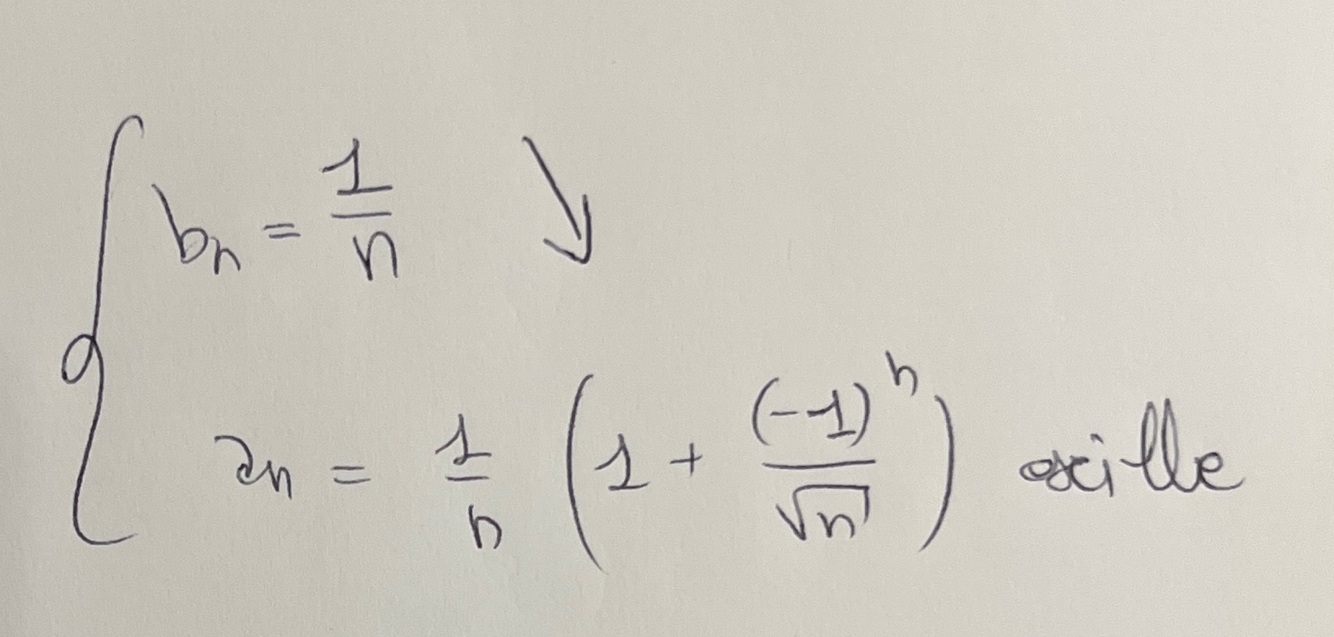 b_n = 1/n ↘
a_n = 1/n (1 + (-1)^n/√n) oscille